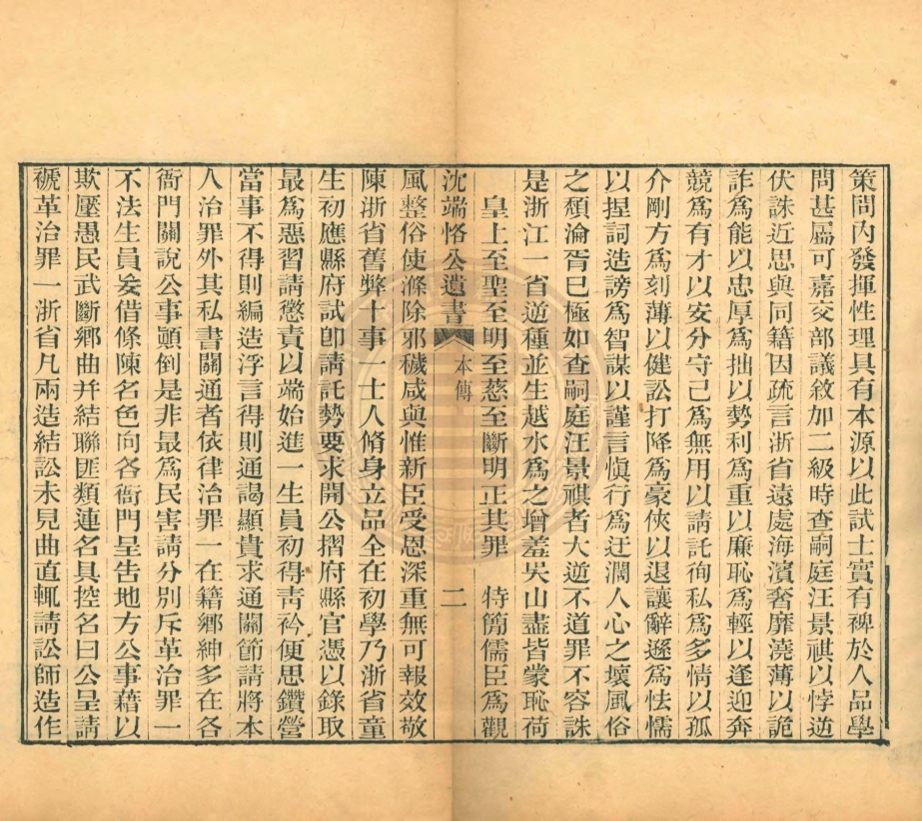 策問內發揮性理具有本源以此試士實有裨於人品學
問甚屬可嘉交部議敘加二級時查嗣庭汪景祺以悖逆
伏誅近思與同籍因疏言浙省遠處海濱奢靡澆薄以詭
詐為能以忠厚為拙以勢利為重以廉恥為輕以逢迎奔
競為有才以安分守己為無用以請託徇私為多情以孤
介剛方為刻薄以健訟打降為豪俠以退讓辭遜為怯懦
以捏詞造謗為智謀以謹言慎行為迂濶人心之壞風俗
之頹淪胥已極如查嗣庭汪景祺者大逆不道罪不容誅
是浙江一省逆種並生越水為之增羞吳山盡皆蒙恥荷
皇上至聖至明至慈至斷明正其罪 特簡儒臣為觀
沈端恪公遺書 本傳 二
風整俗使滌除邪穢咸與惟新臣受恩深重無可報效敬
陳浙省舊弊十事一士人脩身立品全在初學乃浙省童
生初應縣府試卽請託勢要求開公摺府縣官憑以錄取
最為惡習請懲責以端始進一生員初得靑衿便思鑽營
當事不得則編造浮言得則通謁顯貴求通關節請將本
人治罪外其私書關通者依律治罪一在籍鄉紳多在各
衙門關說公事顚倒是非最為民害請分別斥革治罪一
不法生員妄借條陳名色向各衙門呈告地方公事藉以
欺壓愚民武斷鄉曲并結聯匪類連名具控名曰公呈請
褫革治罪一浙省凡兩造結訟未見曲直輒請訟師造作